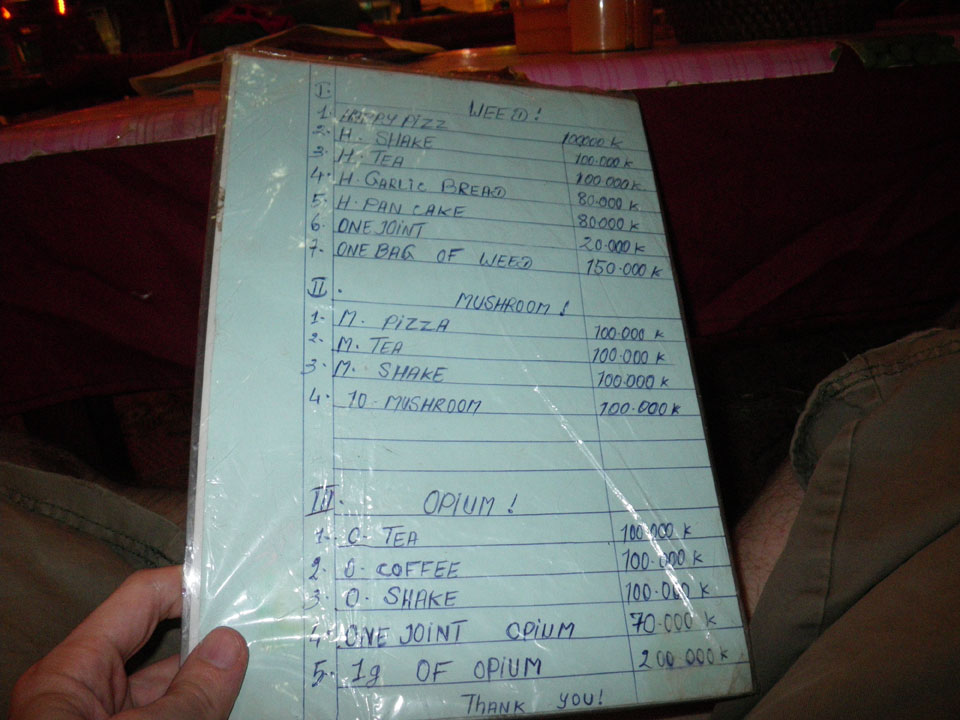 I. WEED!
1. HAPPY PIZZ 100000 K
2. H. SHAKE 100.000 K
3. H. TEA 100.000K
4. H. GARLIC BREAD 80.000 K
5. H. PAN CAKE 80000 K
6. ONE JOINT 20.000 K
7. ONE BAG OF WEED 150.000 K
II. MUSHROOM!
1- M. PIZZA 100.000 K
2- M. TEA 100.000 K
3- M. SHAKE 100.000 K
4. 10- MUSHROOM 100.000 K
III. OPIUM!
1- O- TEA 100.000 K
2. O- COFFEE 100.000 K
3. O- SHAKE 100.000 K
4- ONE JOINT OPIUM 70.000 K
5. 1g OF OPIUM 200.000 K
THANK YOU!